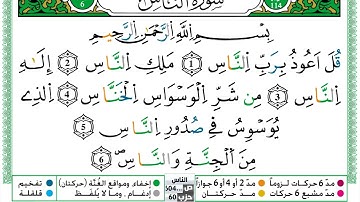 سُورَةُ النَّاسِ
6
114
بِسْمِ اللَّهِ الرَّحْمَٰنِ الرَّحِيمِ
قُلْ أَعُوذُ بِرَبِّ النَّاسِ 1 مَلِكِ النَّاسِ 2 إِلَٰهِ
النَّاسِ 3 مِن شَرِّ الْوَسْوَاسِ الْخَنَّاسِ 4 الَّذِي
يُوَسْوِسُ فِي صُدُورِ النَّاسِ 5
مِنَ الْجِنَّةِ وَالنَّاسِ 6
مدّ 6 حركات لزوماً مدّ 2 أو 4 أو 6 جوازاً إخفاء ومواقع الغُنَّة (حركتان) تفخيم
مدّ مشبع 6 حركات مدّ حركتان إدغام ، وما لا يُلفظ قلقلة
الناس
ص 604
حزب 60